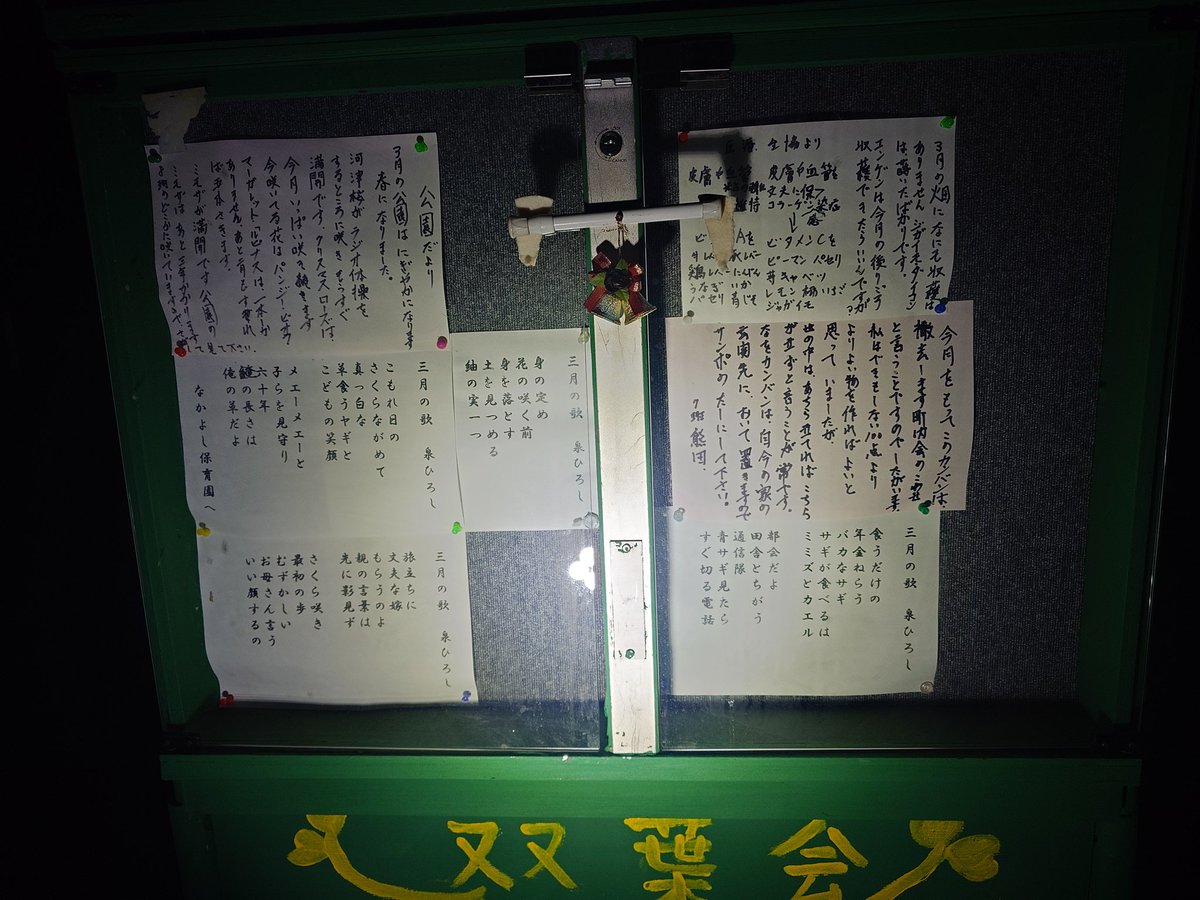 公園だより
3月の公園はにぎやかになります
春になりました。
河津桜がラジオ体操を
するところに咲きます すぐ
満開です。クリスマスローズは
今月いっぱい咲き続きます
今咲いてる花はパンジー ビオラ
マーガレット
ありません あと
満開です 公園の
三月の歌 泉ひろし
こもれ日の
さくらながめて
真っ白な
草食うヤギと
こどもの笑顔
メエーメエーと
子らを見守り
六十年
鬚の長さは
俺の革だよ
なかよし保育園へ
三月の歌 泉ひろし
身の定め
花の咲く前
身を落とす
土を見つめる
紬の実一つ
三月の歌 泉ひろし
旅立ちに
丈夫な嫁
もらうのよ
親の言葉は
光に影見ず
さくら咲き
最初の歩
むずかしい
お母さん言う
いい顔するの
3月の畑になにも収穫は
ありません ジャガイモ ダイコン
は蒔いたばかりです。
エンゲンは今月の後に
収穫できたらいいんですが
生協より
皮膚や
ビタミンCを
ピーマン パセリ
キャベツ
今月をもってこのカンバンは、
撤去します 町内会の
と言うことですので したがいます。
私はできもしない100点より
よりよい物を作ればよいと
思って いましたが
世の中は、あちら立てればこちら
が立ずと言うことが常です。
なをカンバンは、自分の家の
玄関先に、おいて置きますので
サンポのたしにして下さい。
7班 熊田.
三月の歌 泉ひろし
食うだけの
年金ねらう
バカなサギ
サギが食べるは
ミミズとカエル
都会だよ
田舎とちがう
通信隊
青サギ見たら
すぐ切る電話
双葉会